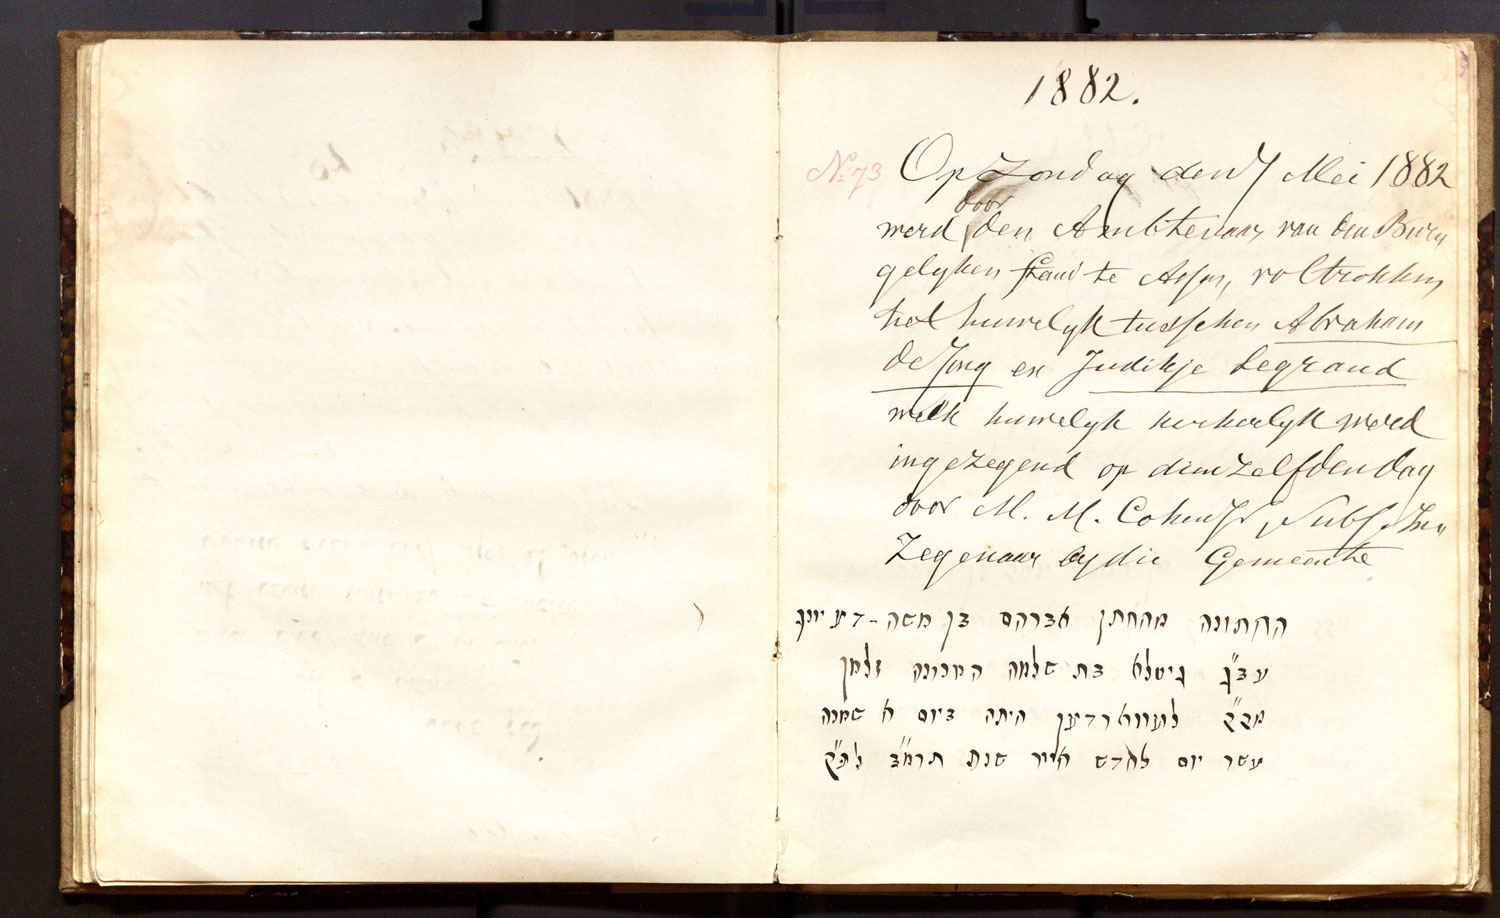 1882.
No. 73 Op Zondag den 7 Mei 1882
door
werd den Ambtenaar van den Burg
gelyken Stand te Assen, voltrokken,
het huwelyk tusschen Abraham
de Jong en Juditje Legrand
welk huwelyk kerkelyk werd
ingezegend op dienzelfden dag
door M. M. Cohen Jr, Subst. In„
zegenaar by die Gemeente
החתונה מהחתן אברהם בן משה - דע יונג
עב״ג גיטלא בת שלמה המכונה זלמן
מק״ק לעווארדען היתה ביום א שמנה
עשר יום לחדש אייר שנת תרמ״ב לפ״ק